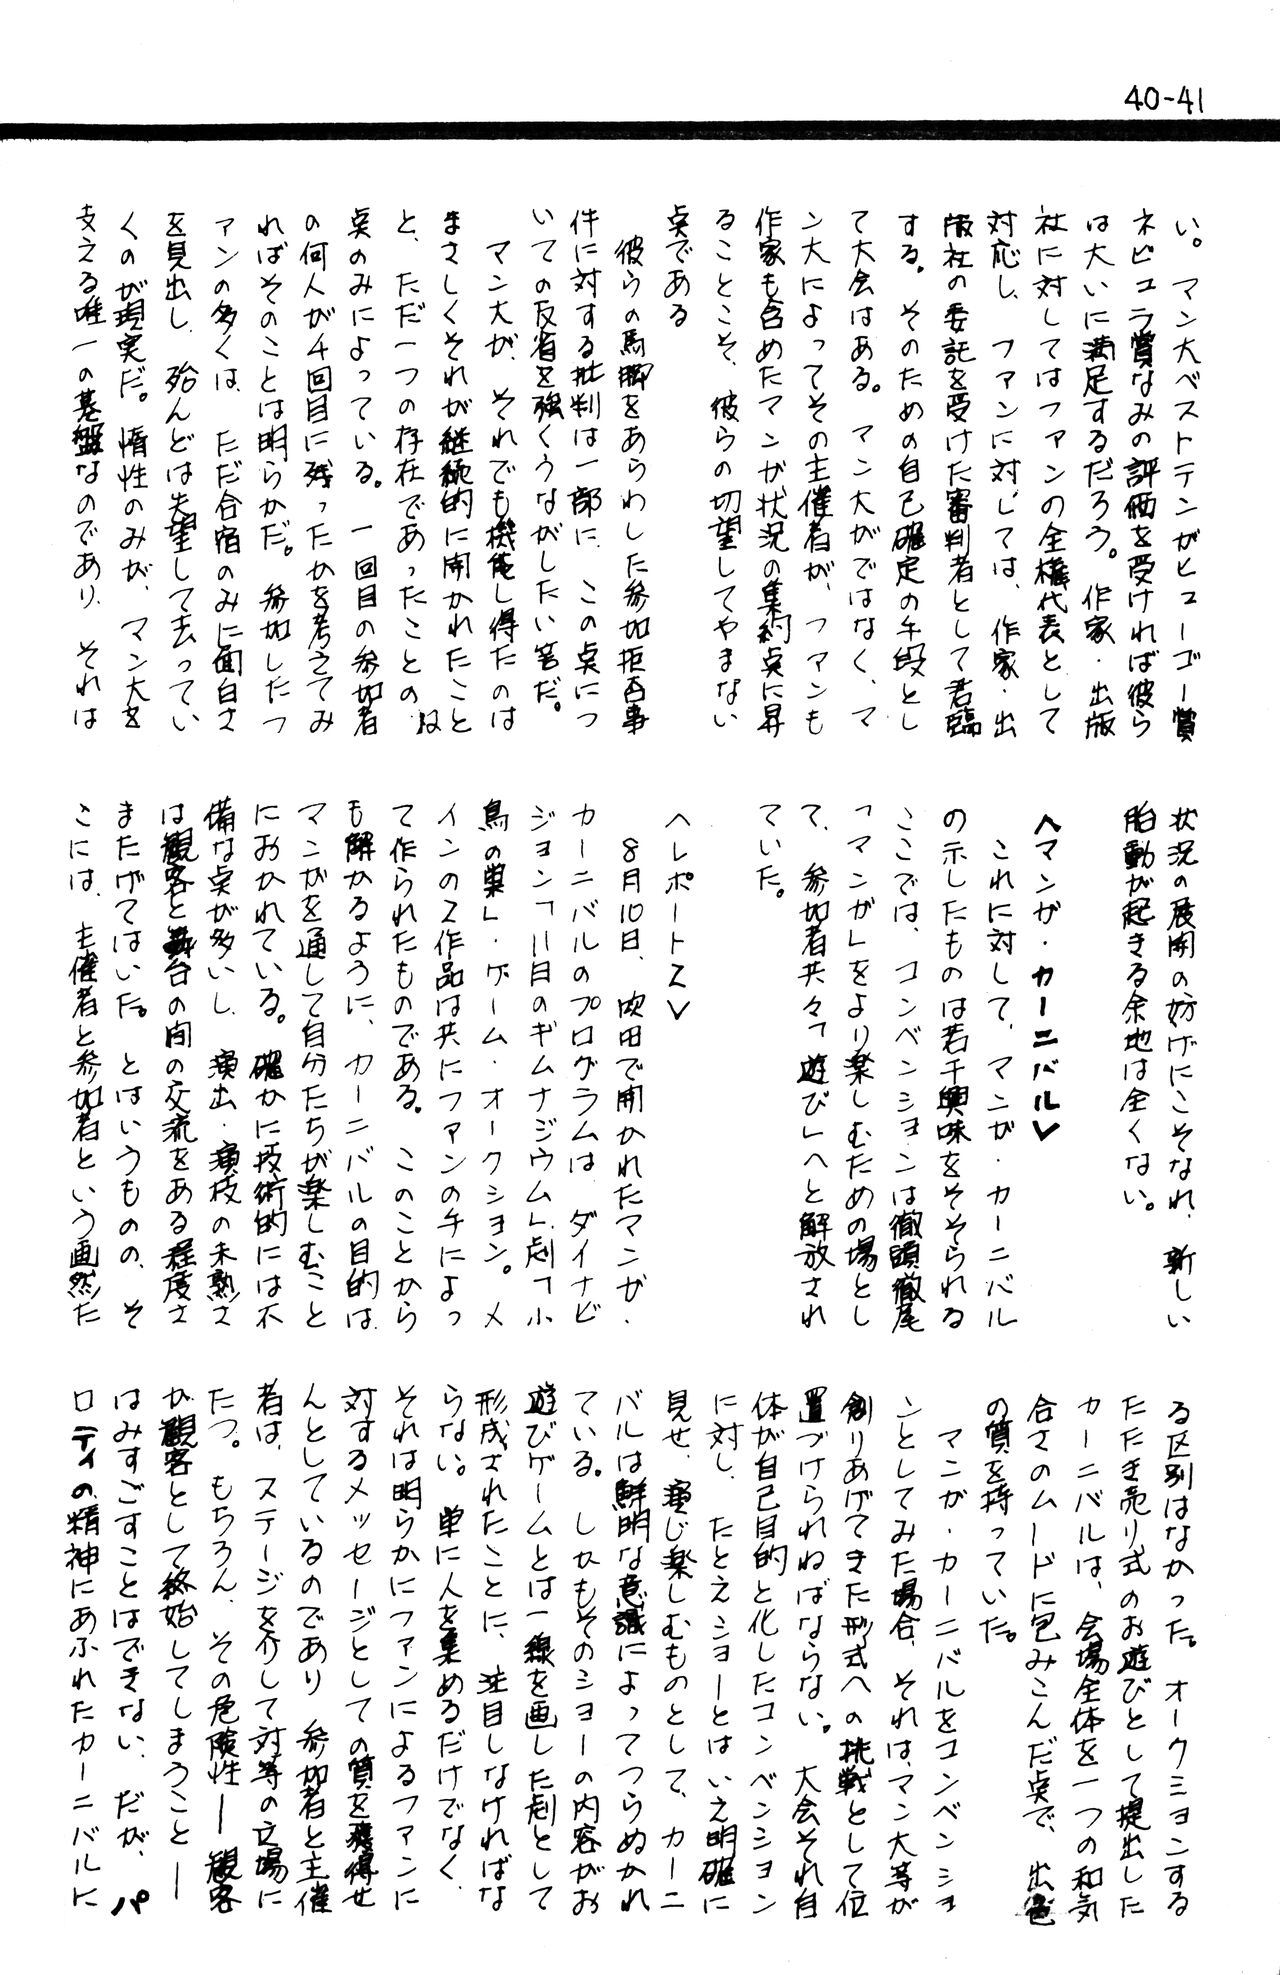 40-41
い。マン大ベストテンがヒューゴー賞
ネビュラ賞なみの評価を受ければ彼ら
は大いに満足するだろう。作家・出版
社に対してはファンの全権代表として
対応し、ファンに対しては、作家・出
版社の委託を受けた審判者として君臨
する。そのための自己確定の手段とし
て大会はある。マン大がではなく、マ
ン大によってその主催者が、ファンも
作家も含めたマンが状況の集約点に昇
ることこそ、彼らの切望してやまない
点である
彼らの馬脚をあらわした参加拒否事
件に対する批判は一部に、この点につ
いての反省を強くうながしたい筈だ。
マン大が、それでも機能し得たのは
まさしくそれが継続的に開かれたこと
と、ただ一つの存在であったことの2
点のみによっている。一回目の参加者
の何人が4回目に残ったかを考えてみ
ればそのことは明らかだ。参加したフ
ァンの多くは、ただ合宿のみに面白さ
を見出し、殆んどは失望して去ってい
くのが現実だ。惰性のみが、マン大を
支える唯一の基盤なのであり、それは
状況の展開の妨げにこそなれ、新しい
胎動が起きる余地は全くない。
〈マンガ・カーニバル〉
これに対して、マンガ・カーニバル
の示したものは若干興味をそそられる
ここでは、コンベンションは徹頭徹尾
「マンガ」をより楽しむための場とし
て、参加者共々「遊び」へと解放され
ていた。
〈レポート2〉
8月10日、吹田で開かれたマンガ・
カーニバルのプログラムは、ダイナビ
ジョン「11日のギムナジウム」、劇「小
鳥の巣」・ゲーム・オークション。メ
インの2作品は共にファンの手によっ
て作られたものである。このことから
も解かるように、カーニバルの目的は
マンガを通して自分たちが楽しむこと
におかれている。確かに技術的には不
備な点が多いし、演出・演技の未熟さ
は観客と舞台の間の交流をある程度さ
またげてはいた。とはいうものの、そ
こには、主催者と参加者という画然た
る区別はなかった。オークションする
たたき売り式のお遊びとして提出した
カーニバルは、会場全体を一つの和気
合さのムードに包みこんだ点で、出色
の質を持っていた。
マンガ・カーニバルをコンベンショ
ンとしてみた場合、それは、マン大等が
創りあげてきた形式への挑戦として位
置づけられねばならない。大会それ自
体が自己目的と化したコンベンション
に対し、たとえショーとはいえ明確に
見せ、演じ楽しむものとして、カーニ
バルは鮮明な意識によってつらぬかれ
ている。しかもそのショーの内容がお
遊びゲームとは一線を画した劇として
形成されたことに、注目しなければな
らない。単に人を集めるだけでなく、
それは明らかにファンによるファンに
対するメッセージとしての質を獲得せ
んとしているのであり 参加者と主催
者は、ステージを介して対等の立場に
たつ。もちろん、その危険性——観客
が観客として終始してしまうこと——
はみすごすことはできない、だが、パ
ロディの精神にあふれたカーニバルに